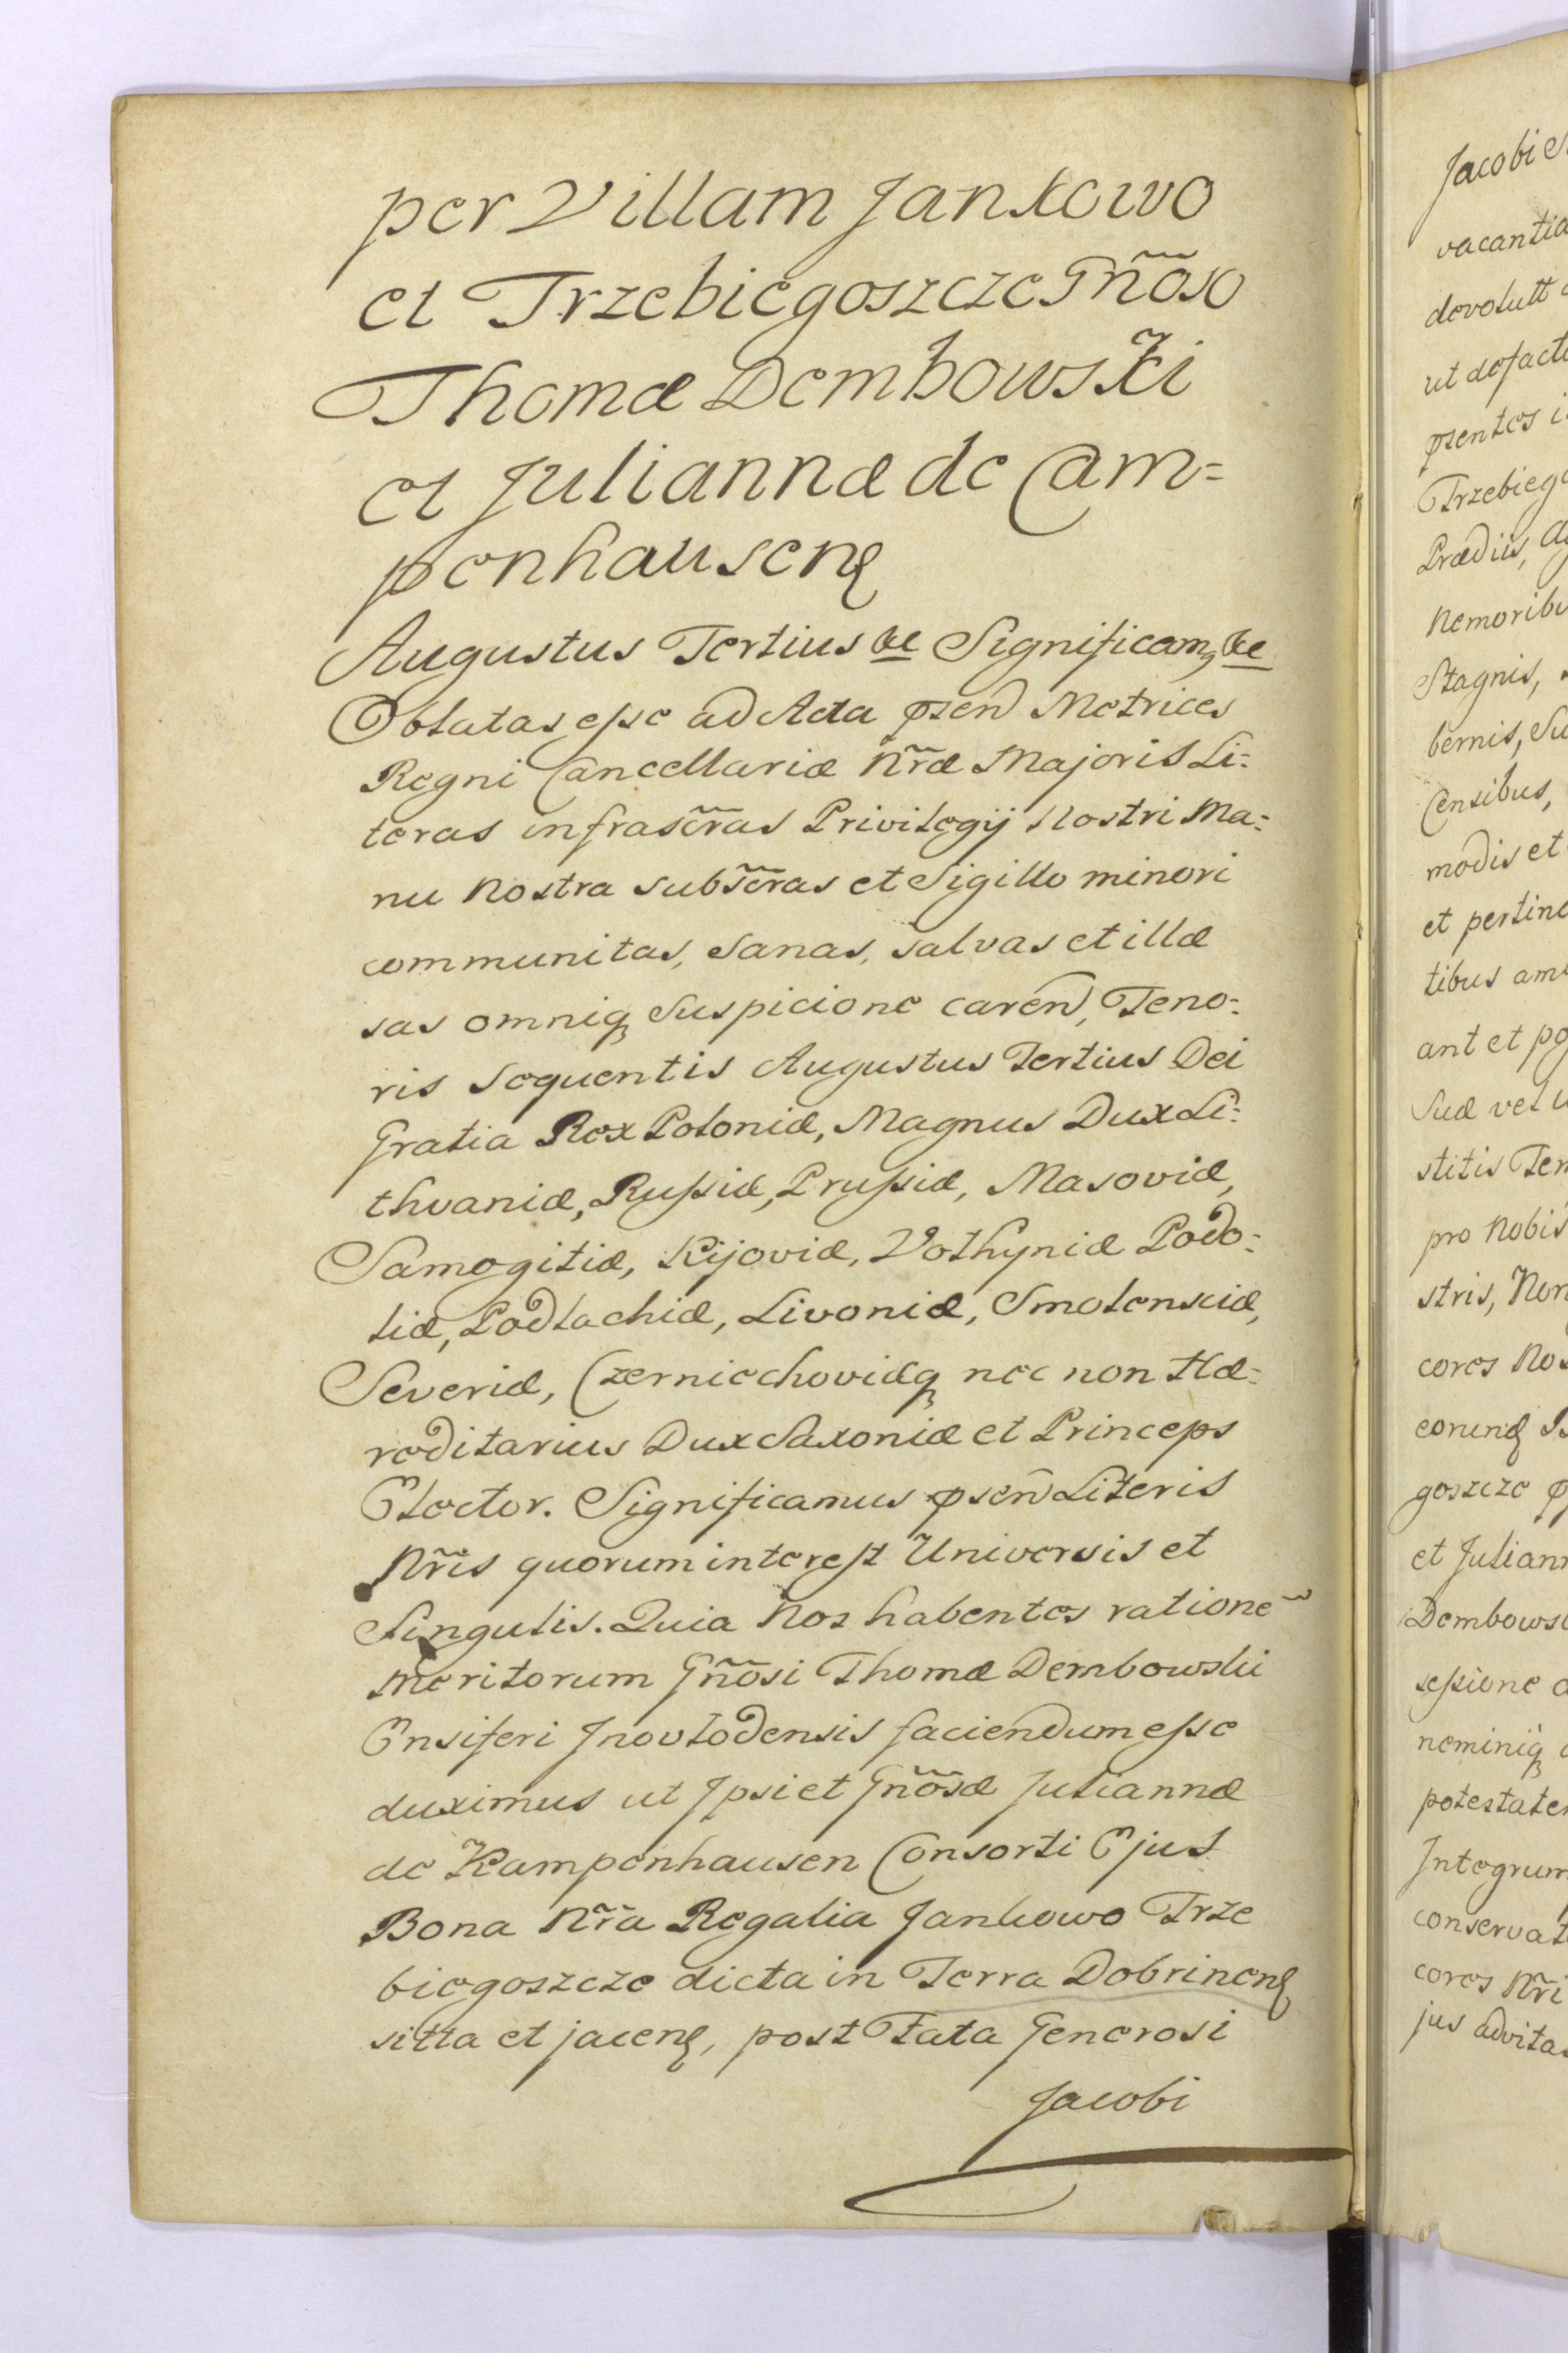 per Villam Jankowo
et Trzebiegoszcze Gñõso
Thomæ Dembowski
et Juliannæ de Cam=
penhausenę
Augustus Tertius &c Significam, &c
Oblatas esse ad Acta pñsen Metrices
Regni Cancellariæ Nr̃æ Majoris Li=
teras infrascr̃as Privilegij Nostri Ma=
nu Nostra subscr̃as et Sigillo minori
communitas, Sanas, salvas et illæ
sas omniq suspicione caren̄, Teno=
ris sequentis Augustus Tertius Dei
Gratia Rex Poloniæ, Magnus Dux Li=
thvaniæ, Russiæ, Prussiæ, Masoviæ,
Samogitiæ, Kijoviæ, Volhyniæ Podo=
liæ, Podlachiæ, Livoniæ, Smolensciæ,
Severiæ, Czerniechoviæq nec non Hæ=
reditarius Dux Saxoniæ et Princeps
Elector. Significamus pñsen Literis
Nr̃is quorum interest Universis et
Singulis. Quia Nos habentes ratione~
meritorum Gñõsi Thomæ Dembowski
Ensiferi Jnovlodensis faciendum esse
duximus ut Jpsi et Gñõsæ Juliannæ
de Kampenhausen Consorti Ejus
Bona Nr̃a Regalia Jankowo Trze
biegoszcze dicta in Terra Dobrinenę
sitta et jacenę, post Fata Generosi
Jacobi
Jacobi
vacantia
devolutt
ut defacto
Trzebiego
Prædiis,
Nemoribu
Stagnis,
bernis, Su
Censibus,
modis et
et pertine
tibus am
ant et po
Suæ vel
stitis Ter
pro Nobis
stris, Non
cores Nos
eorunę
goszcze
et Juliann
Dembowsc
sessione
neminiq
potestatem
Integrum
conservat
cores Nr̃i
jus advita